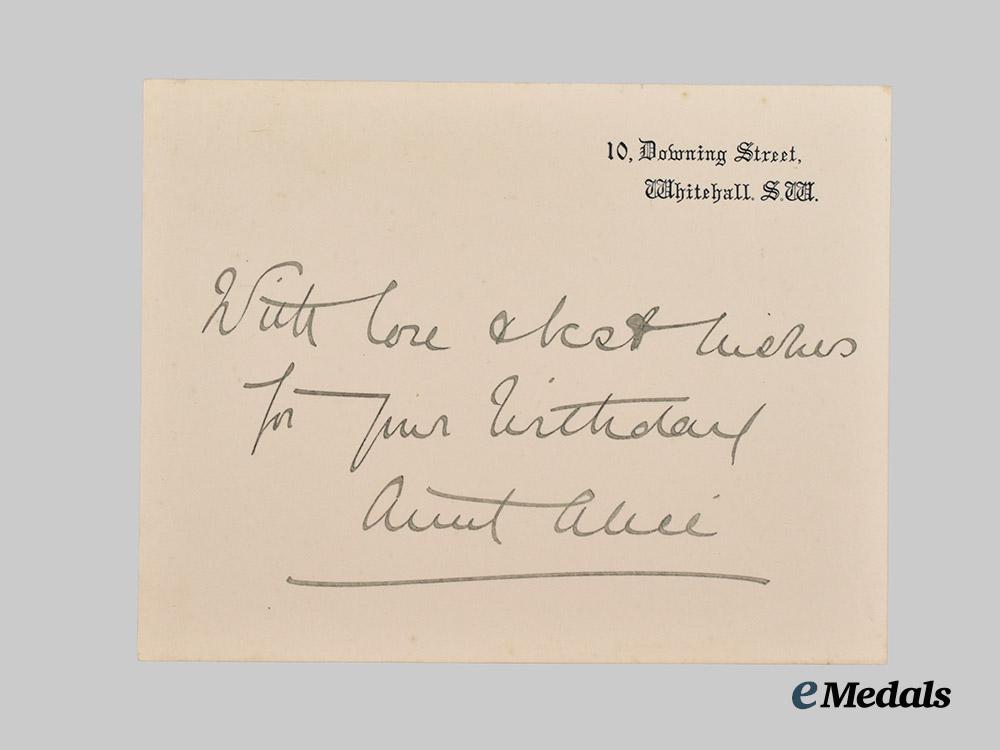 10, Downing Street,
Whitehall. S.W.
With love & best wishes
for your birthday
Aunt Alice
eMedals